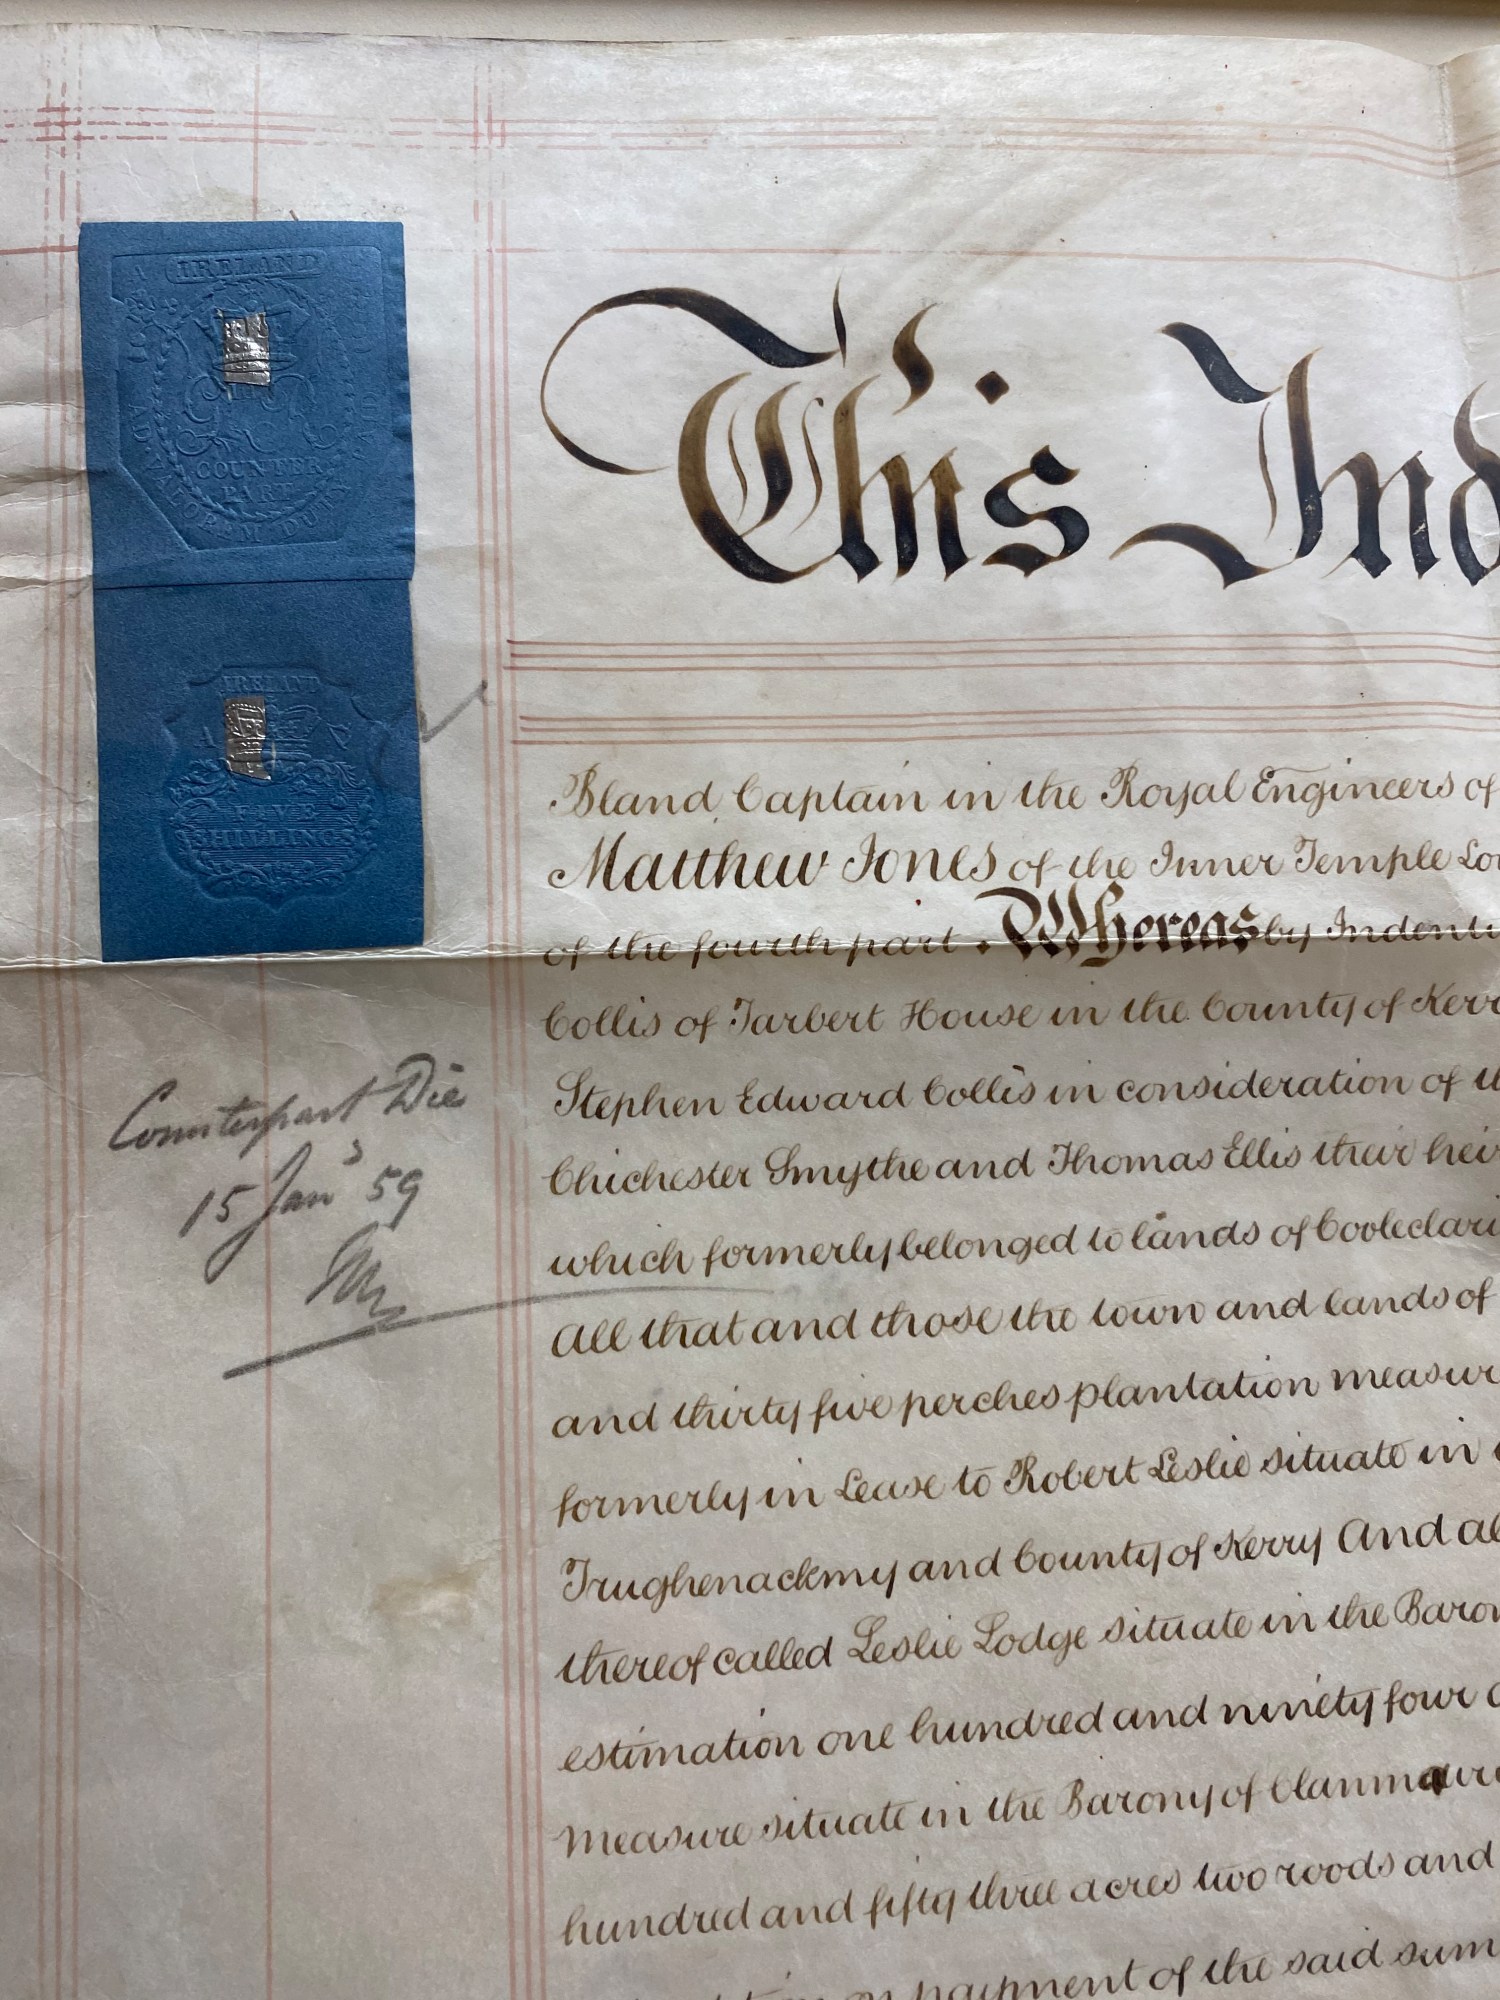 IRELAND
COUNTER
PART
AD VALOREM DUTY
IRELAND
FIVE
SHILLINGS
This Ind
Bland Captain in the Royal Engineers of
Matthew Jones of the Inner Temple Lon
of the fourth part. Whereas by Indentu
Collis of Tarbert House in the County of Kerr
Stephen Edward Collis in consideration of th
Chichester Smythe and Thomas Ellis their heir
which formerly belonged to lands of Cooleclari
All that and those the town and lands of
and thirty five perches plantation measur
formerly in Lease to Robert Leslie situate in
Trughenackmy and County of Kerry And al
thereof called Leslie Lodge situate in the Baron
estimation one hundred and ninety four a
measure situate in the Barony of Clanmauri
hundred and fifty three acres two roods and
on payment of the said sum
Counterpart Die
15 Jan 59